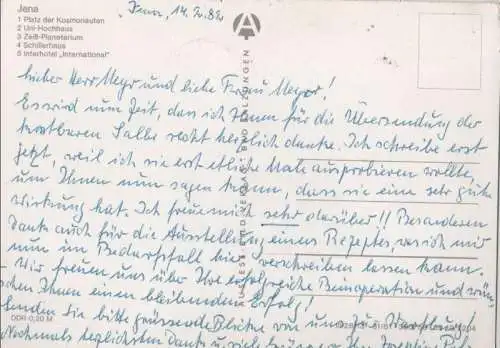 Jena
1 Platz der Kosmonauten
2 Uni-Hochhaus
3 Zeiß-Planetarium
4 Schillerhaus
5 Interhotel „International"
Jena, 14.2.82
Lieber Herr Meyer und liebe Frau Meyer!
Es wird nun Zeit, daß ich Ihnen für die Übersendung der
kostbaren Salbe recht herzlich danke. Ich schreibe erst
jetzt, weil ich sie erst etliche Male ausprobieren wollte,
um Ihnen nun sagen kann, dass sie eine sehr gute
Wirkung hat. Ich freue mich sehr darüber!! Besonderen
Dank auch für die Ausstellung eines Rezeptes, was ich mir
nun im Bedarfsfall hier verschreiben lassen kann.
Wir freuen uns über Ihre erfolgreiche Beinoperation und wün-
schen Ihnen einen bleibenden Erfolg!
Senden Sie bitte grüssende Blicke von uns zur Wartburg!
Nochmals herzlichsten Dank u. viele
DDR 0,20 M
AUSLESE-BILD-VERLAG · BAD SALZUNGEN